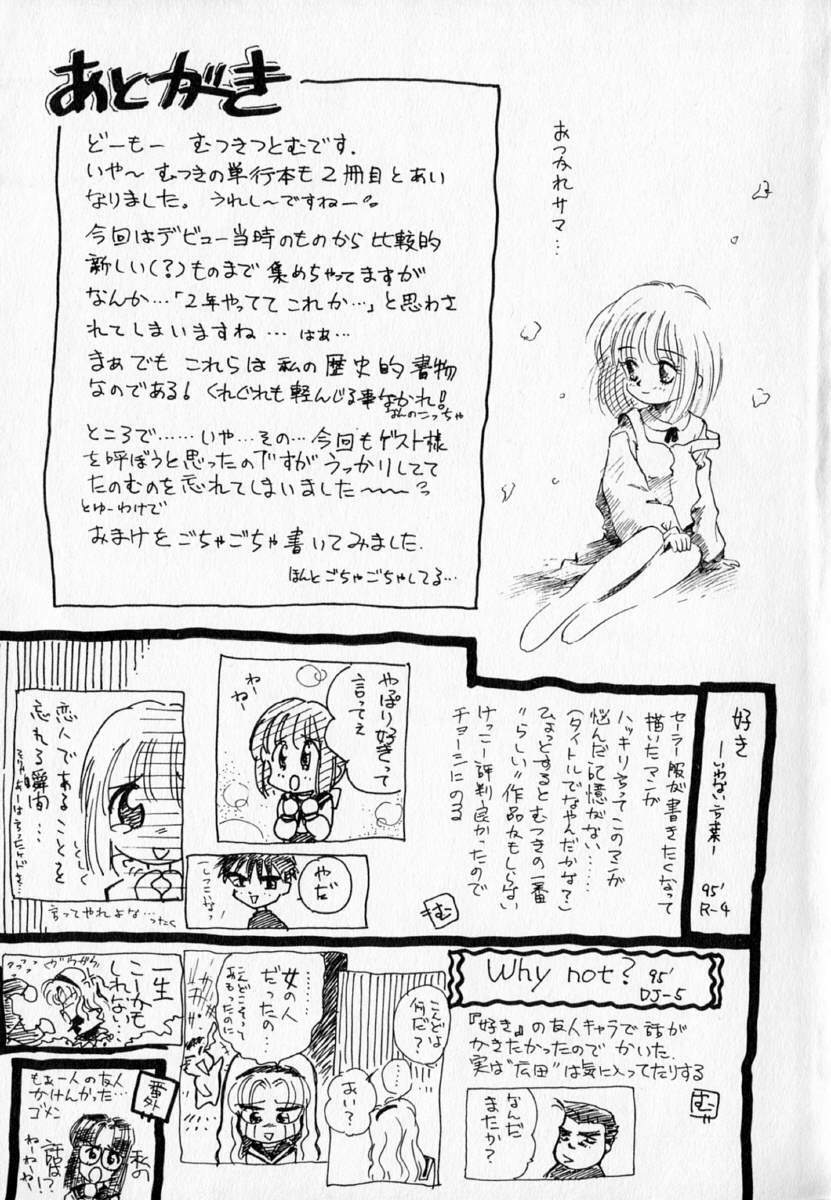 あとがき
どーもー むつきつとむです.
いや〜 むつきの単行本も2冊目とあい
なりました。うれし〜ですねー
今回はデビュー当時のものから比較的
新しい(?)ものまで集めちゃってますが
なんか…「2年やってて これか…」と思わさ
れてしまいますね… はぁ…
まぁでも これらは私の歴史的書物
なのである! くれぐれも軽んじる事なかれ!
なんのこっちゃ
ところで……いや…その…今回もゲスト様
を呼ぼうと思ったのですがうっかりしてて
たのむのを忘れてしまいました〜〜
とゆーわけで
おまけをごちゃごちゃ書いてみました.
ほんとごちゃごちゃしてる…
おつかれサマ…
好き
―いわない言葉―
95'
R-4
セーラー服が書きたくなって
描いたマンガ
ハッキリ言ってこのマンガ
悩んだ記憶がない……
(タイトルでなやんだかな?)
ひょっとするとむつきの一番
"らしい"作品かもしらない
けっこー評判良かったので
チョーシにのる
む
やっぱり好きって
言ってぇ
わー
ねー
やだ
しつこいなっ
恋人であることを
忘れる瞬間…
しくしく
言ってやれよな…ったく
Why not?
95'
DJ-5
『好き』の友人キャラで話が
かきたかったので かいた.
実は"広田"は気に入ってたりする
む
なんだ
またか?
こんどは
何だ?
あい?
女の人
だったの…
こんどこそって
おもったのに
一生
こーかも
しれない…
番外
もぉ一人の友人
かけんかった…
ゴメン
私の
話は!?
ねーねーっ